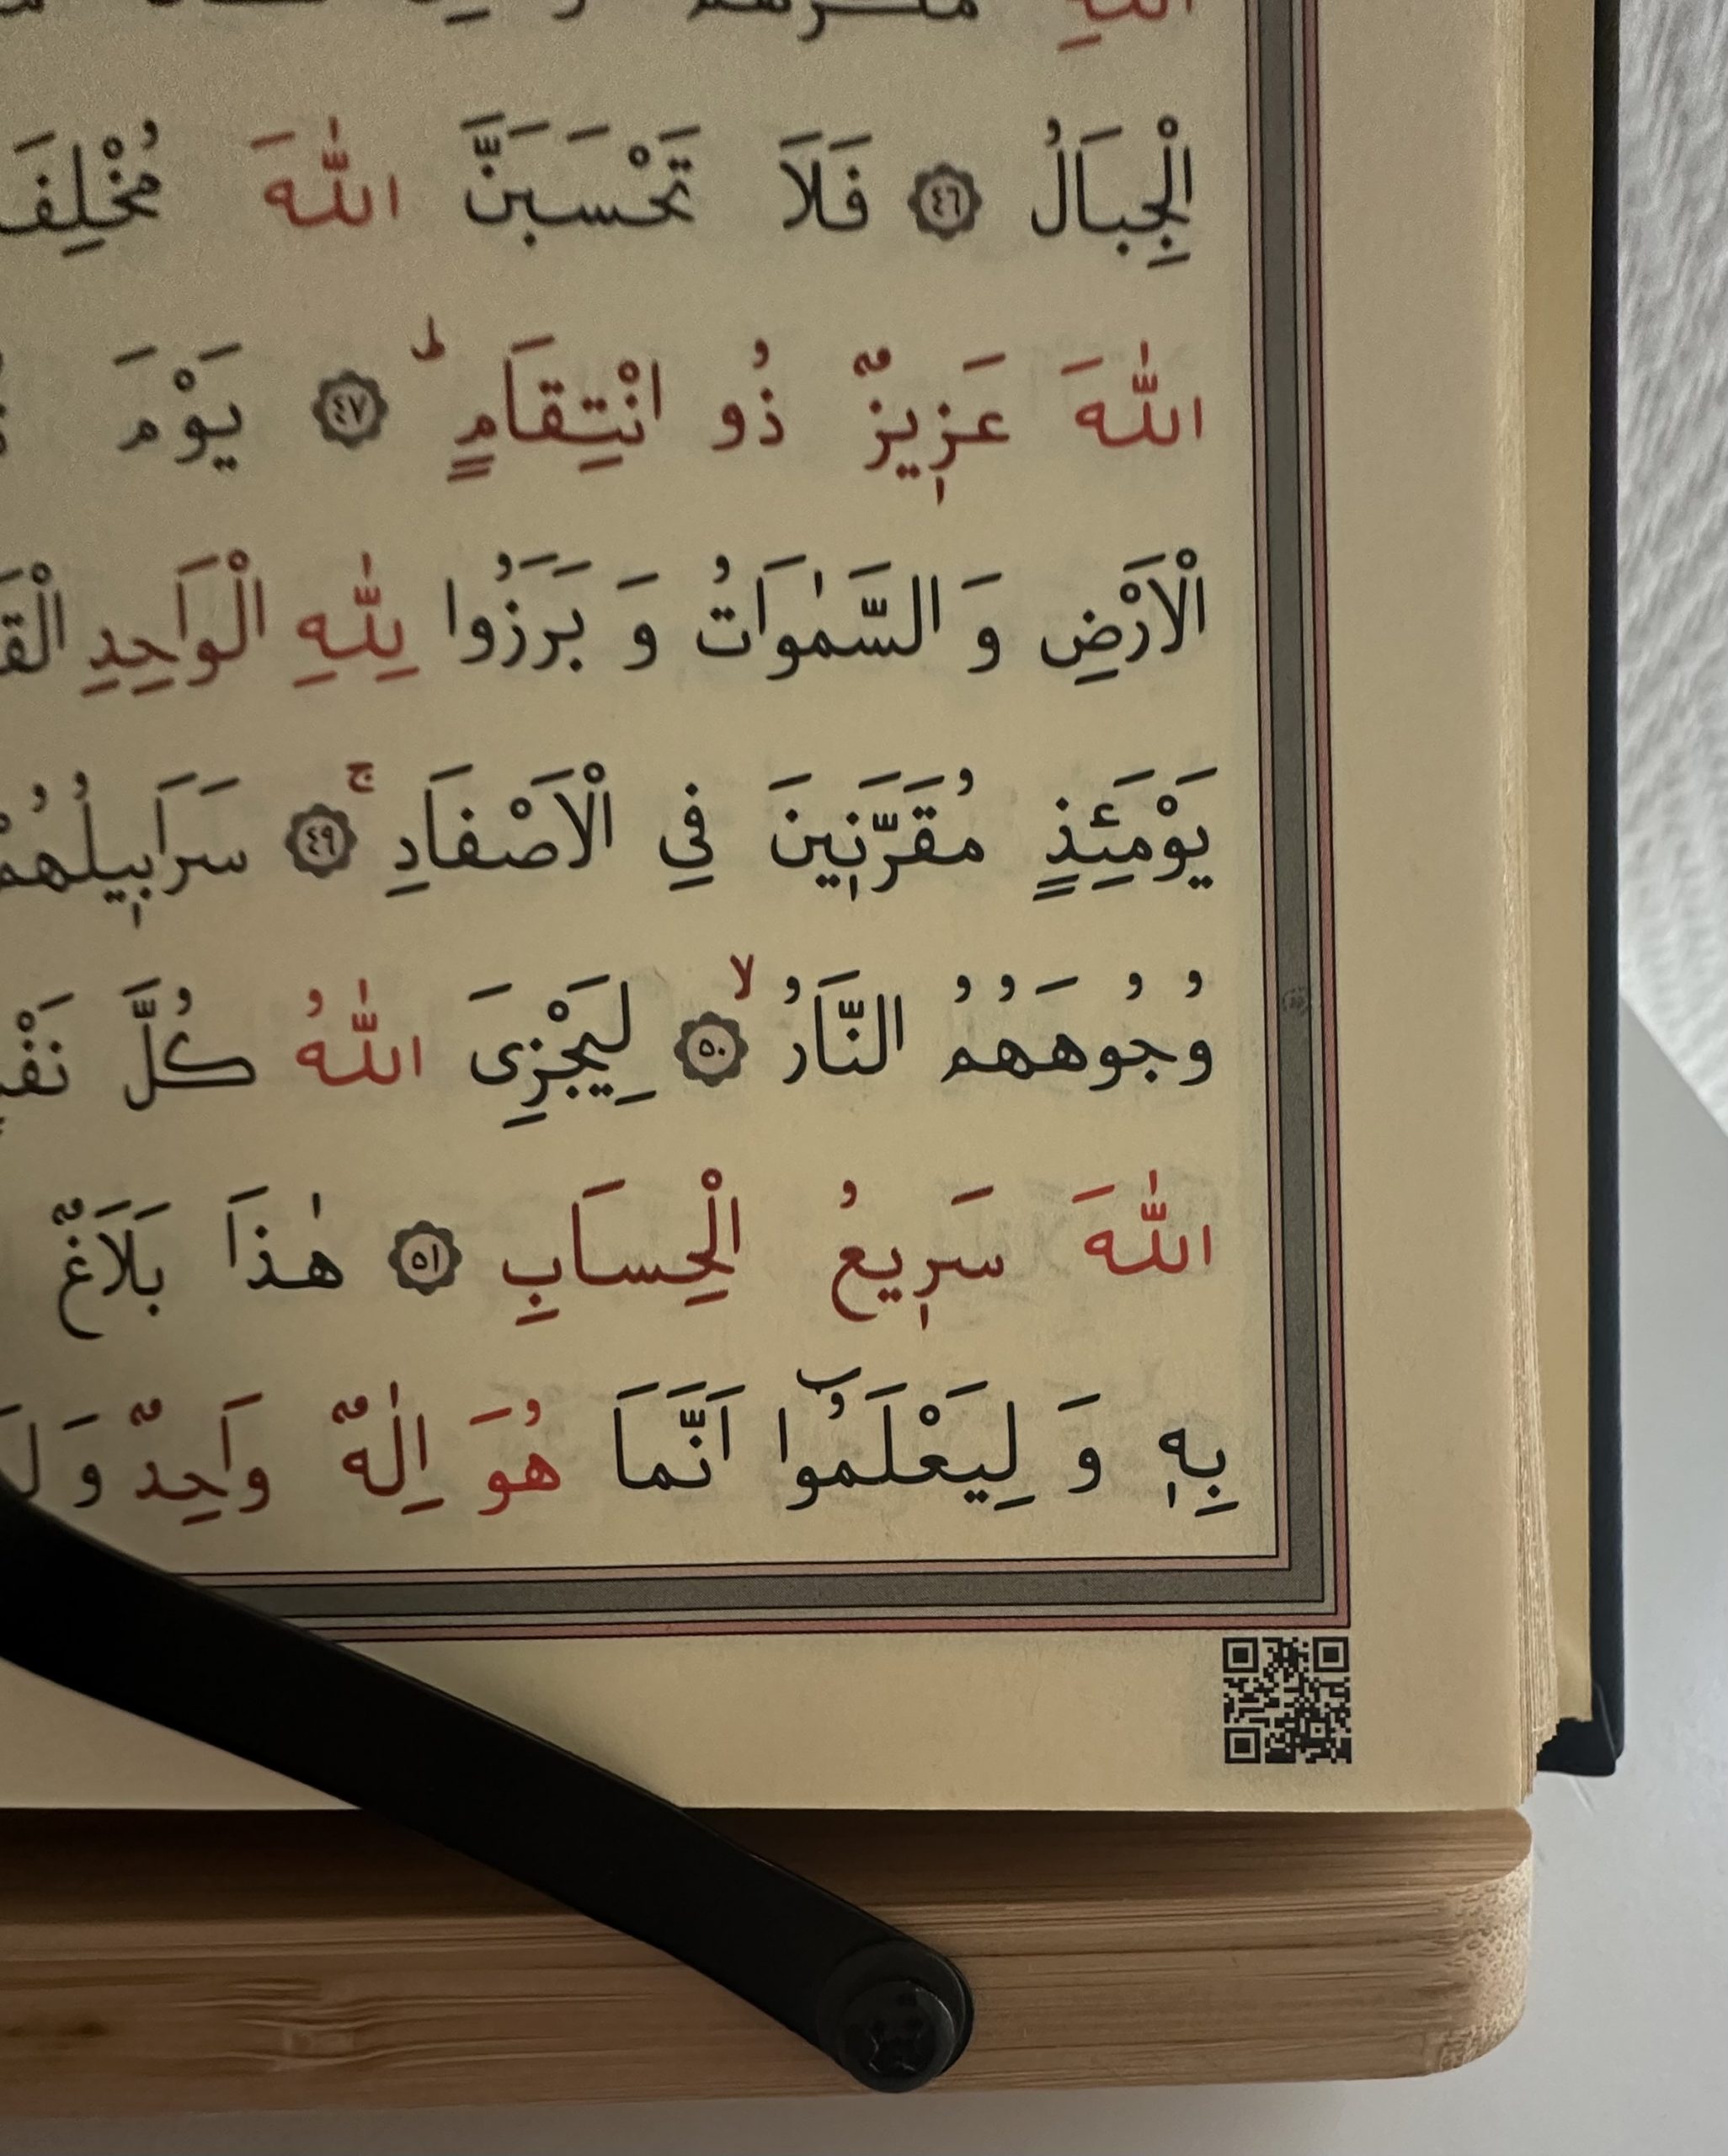 الْجِبَالُ ﴿٤٦﴾ فَلَا تَحْسَبَنَّ اللّٰهَ مُخْلِفَ
اللّٰهَ عَزٖيزٌ ذُو انْتِقَامٍ ؕ ﴿٤٧﴾ يَوْمَ
الْاَرْضِ وَ السَّمٰوَاتُ وَ بَرَزُوا لِلّٰهِ الْوَاحِدِ
يَوْمَئِذٍ مُقَرَّنٖينَ فِي الْاَصْفَادِ ۚ ﴿٤٩﴾ سَرَابٖيلُهُمْ
وُجُوهَهُمُ النَّارُ ۙ ﴿٥٠﴾ لِيَجْزِىَ اللّٰهُ كُلَّ
اللّٰهَ سَرٖيعُ الْحِسَابِ ﴿٥١﴾ هٰذَا بَلَاغٌ
بِهٖ وَ لِيَعْلَمُٓوا اَنَّمَا هُوَ اِلٰهٌ وَاحِدٌ وَ